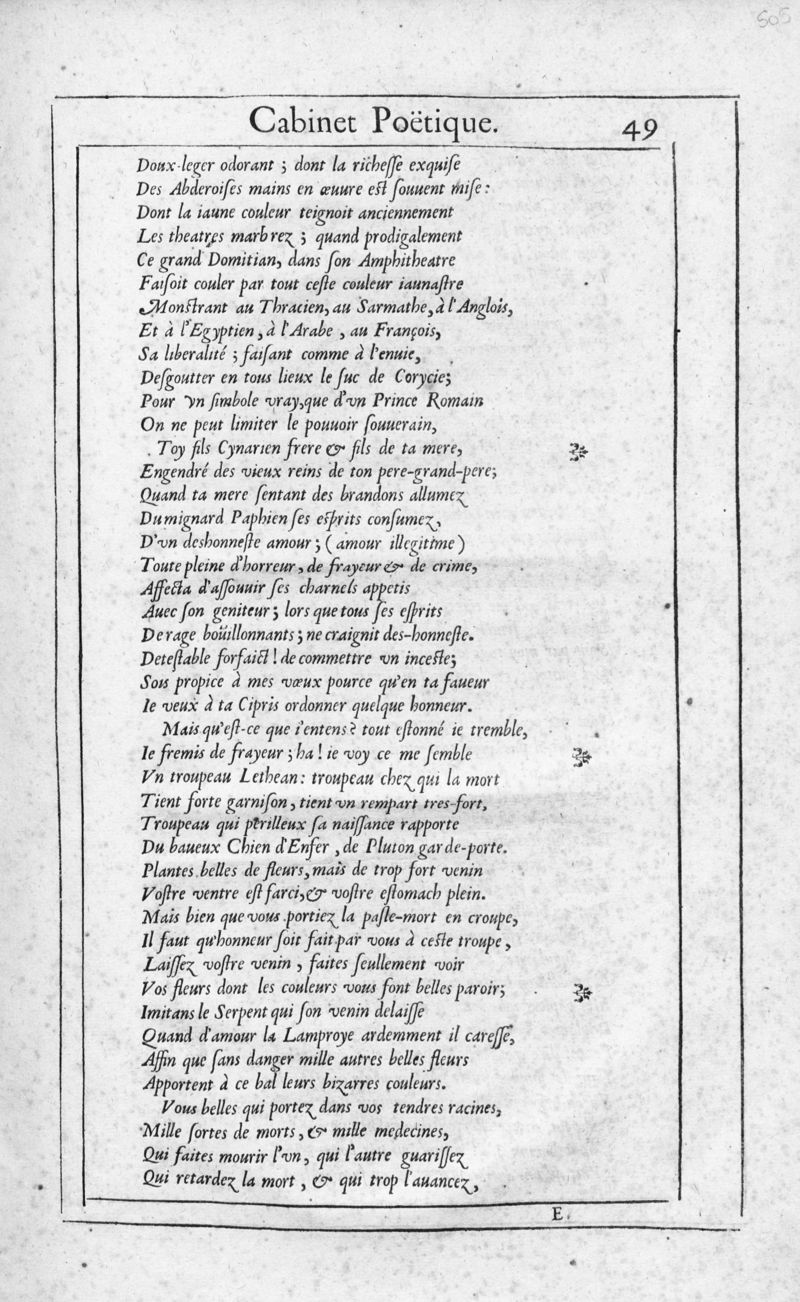 505
Cabinet Poëtique. 49
Doux-leger odorant ; dont la richesse exquise
Des Abderoises mains en œuure est souuent mise :
Dont la iaune couleur teignoit anciennement
Les theatres marbrez ; quand prodigalement
Ce grand Domitian, dans son Amphitheatre
Faisoit couler par tout ceste couleur iaunastre
Monstrant au Thracien, au Sarmathe, à l'Anglois,
Et à l'Egyptien, à l'Arabe , au François,
Sa liberalité ; faisant comme à l'enuie,
Desgoutter en tous lieux le suc de Corycie;
Pour vn simbole vray, que d'vn Prince Romain
On ne peut limiter le pouuoir souuerain,
Toy fils Cynarien frere & fils de ta mere,
Engendré des vieux reins de ton pere-grand-pere;
Quand ta mere sentant des brandons allumez
Du mignard Paphien ses esprits consumez,
D'vn deshonneste amour ; ( amour illegitime )
Toute pleine d'horreur, de frayeur & de crime,
Affecta d'assouuir ses charnels appetis
Auec son geniteur ; lors que tous ses esprits
De rage boüillonnants ; ne craignit des-honneste.
Detestable forfaict ! de commettre vn inceste;
Sois propice à mes vœux pource qu'en ta faueur
Ie veux à ta Cipris ordonner quelque honneur.
Mais qu'est-ce que i'entens ? tout estonné ie tremble,
Ie fremis de frayeur ; ha ! ie voy ce me semble
Vn troupeau Lethean : troupeau chez qui la mort
Tient forte garnison, tient vn rempart tres-fort,
Troupeau qui perilleux sa naissance rapporte
Du baueux Chien d'Enfer , de Pluton garde-porte.
Plantes belles de fleurs, mais de trop fort venin
Vostre ventre est farci, & vostre estomach plein.
Mais bien que vous portiez la pasle-mort en croupe,
Il faut qu'honneur soit fait par vous à ceste troupe ,
Laissez vostre venin , faites seullement voir
Vos fleurs dont les couleurs vous font belles paroir;
Imitans le Serpent qui son venin delaisse
Quand d'amour la Lamproye ardemment il caresse,
Affin que sans danger mille autres belles fleurs
Apportent à ce bal leurs bizarres couleurs.
Vous belles qui portez dans vos tendres racines,
Mille sortes de morts, & mille medecines,
Qui faites mourir l'vn, qui l'autre guarissez
Qui retardez la mort , & qui trop l'auancez,
E